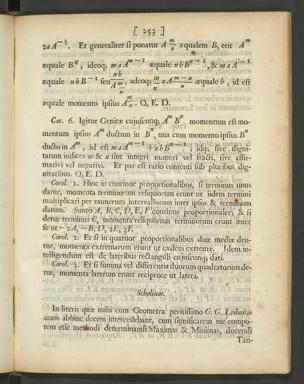 [ 253 ]
2aA^{-½}. Et generaliter si ponatur A^{m/n} æqualem B, erit A^m
æquale B^n, ideoq; maA^{m-1} æquale nbB^{n-1}, & maA^{-1}
æquale nbB^{-1} seu nb/A^{m/n}, adeoq; m/n aA^{(m-n)/n} æquale b, id est
æquale momento ipsius A^{m/n}. Q. E. D.
Cas. 6. Igitur Genitæ cujuscunq; A^m B^n momentum est mo-
mentum ipsius A^m ductum in B^n, una cum momento ipsius B^n
ducto in A^m, id est maA^{m-1} + nbB^{n-1}; idq; sive digni-
tatum indices m & n sint integri numeri vel fracti, sive affir-
mativi vel negativi. Et par est ratio contenti sub pluribus dig-
nitatibus. Q. E. D.
Corol. 1. Hinc in continue proportionalibus, si terminus unus
datur, momenta terminorum reliquorum erunt ut iidem termini
multiplicati per numerum intervallorum inter ipsos & terminum
datum. Sunto A, B, C, D, E, F continue proportionales; & si
detur terminus C, momenta reliquorum terminorum erunt inter
se ut -2A, -B, D, 2E, 3F.
Corol. 2. Et si in quatuor proportionalibus duæ mediæ den-
tur, momenta extremarum erunt ut eædem extremæ. Idem in-
telligendum est de lateribus rectanguli cujuscunq; dati.
Corol. 3. Et si summa vel differentia duorum quadratorum de-
tur, momenta laterum erunt reciproce ut latera.
Scholium.
In literis quæ mihi cum Geometra peritissimo G. G. Leibnitio
annis abhinc decem intercedebant, cum significarem me compo-
tem esse methodi determinandi Maximas & Minimas, ducendi
Tan-